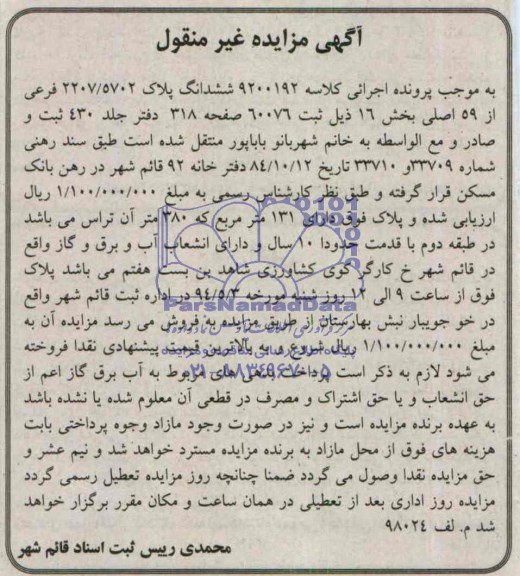 آگهی مزایده غیر منقول
به موجب پرونده اجرائی کلاسه ۹۲۰۰۱۹۲ ششدانگ پلاک ۲۲۰۷/۵۷۰۲ فرعی
از ۵۹ اصلی بخش ۱۶ ذیل ثبت ۶۰۰۷۶ صفحه ۳۱۸ دفتر جلد ۴۳۰ ثبت و
صادر و مع الواسطه به خانم شهربانو باباپور منتقل شده است طبق سند رهنی
شماره ۳۳۷۰۹و ۳۳۷۱۰ تاریخ ۸۴/۱۰/۱۲ دفتر خانه ۹۲ قائم شهر در رهن بانک
مسکن قرار گرفته و طبق نظر کارشناس رسمی به مبلغ ۱/۱۰۰/۰۰۰/۰۰۰ ریال
ارزیابی شده و پلاک فوق دارای ۱۳۱ متر مربع که ۳۸۰ متر آن تراس می باشد
در طبقه دوم با قدمت حدودا ۱۰ سال و دارای انشعاب آب و برق و گاز واقع
در قائم شهر خ کارگر کوی کشاورزی شاهد بن بست هفتم می باشد پلاک
فوق از ساعت ۹ الی ۱۲ روز شنبه مورخه ۹۴/۵/۳ در اداره ثبت قائم شهر واقع
در خو جویبار نبش بهارستان از طریق مزایده به فروش می رسد مزایده آن به
مبلغ ۱/۱۰۰/۰۰۰/۰۰۰ ریال شروع و به بالاترین قیمت پیشنهادی نقدا فروخته
می شود لازم به ذکر است پرداخت بدهی های مربوط به آب برق گاز اعم از
حق انشعاب و یا حق اشتراک و مصرف در قطعی آن معلوم شده یا نشده باشد
به عهده برنده مزایده است و نیز در صورت وجود مازاد وجوه پرداختی بابت
هزینه های فوق از محل مازاد به برنده مزایده مسترد خواهد شد و نیم عشر و
حق مزایده نقدا وصول می گردد ضمنا چنانچه روز مزایده تعطیل رسمی گردد
مزایده روز اداری بعد از تعطیلی در همان ساعت و مکان مقرر برگزار خواهد
شد م. لف ۹۸۰۲۴
محمدی رییس ثبت اسناد قائم شهر
ParsNamadData
۰۲۱-۸۸۳۴۹۶۷۰-۵